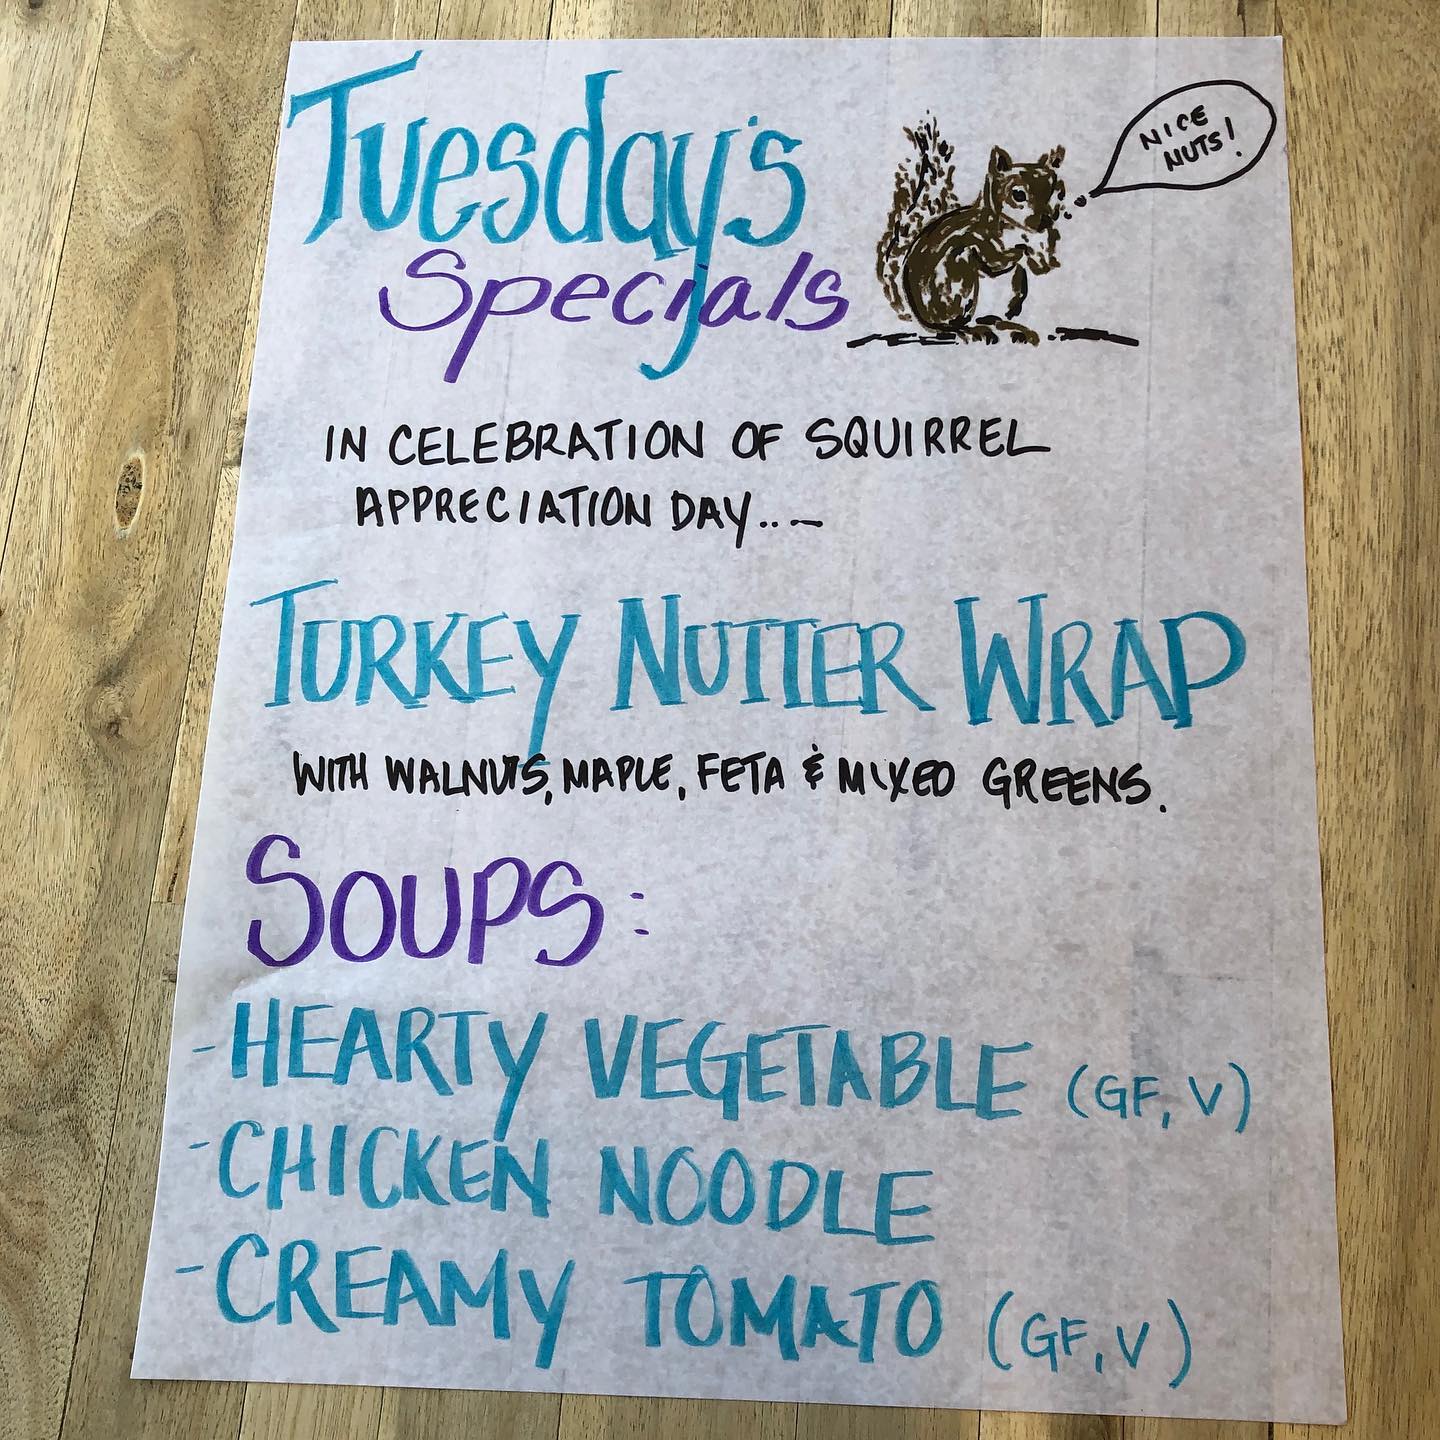 Tuesday's
Specials
NICE
NUTS!
IN CELEBRATION OF SQUIRREL
APPRECIATION DAY...
TURKEY NUTTER WRAP
WITH WALNUTS, MAPLE, FETA & MIXED GREENS.
SOUPS:
- HEARTY VEGETABLE (GF, V)
- CHICKEN NOODLE
- CREAMY TOMATO (GF, V)